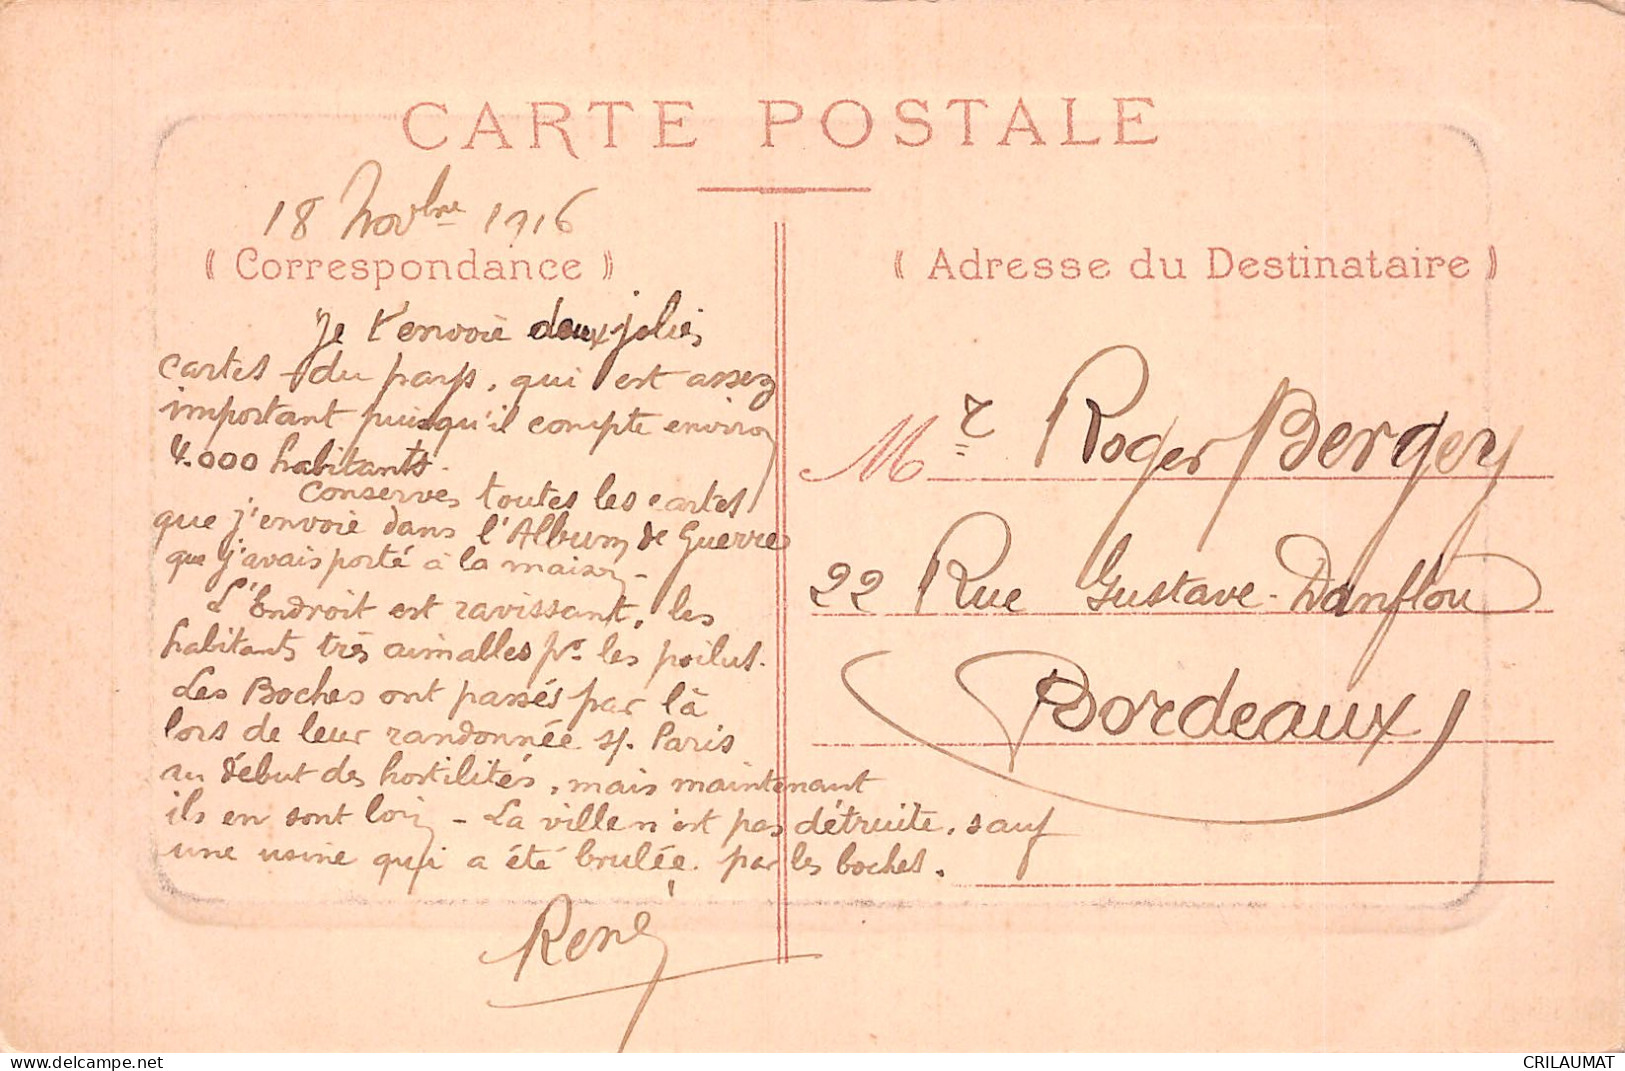 CARTE POSTALE
18 Novbre 1916
( Correspondance )
Je t'envoie deux jolies
cartes du pays, qui est assez
important puisqu'il compte environ
4.000 habitants.
Conserves toutes les cartes
que j'envoie dans l'Album de Guerre
que j'avais porté à la maison -
L'Endroit est ravissant, les
habitants très aimalles pr. les poilus.
Les Boches ont passés par là
lors de leur randonnée s/. Paris
au début des hostilités, mais maintenant
ils en sont loin - La ville n'est pas détruite, sauf
une usine qui a été brulée par les boches.
René
( Adresse du Destinataire )
Mr Roger Bergey
22 Rue Gustave-Danflou
Bordeaux
www.delcampe.net
CRILAUMAT